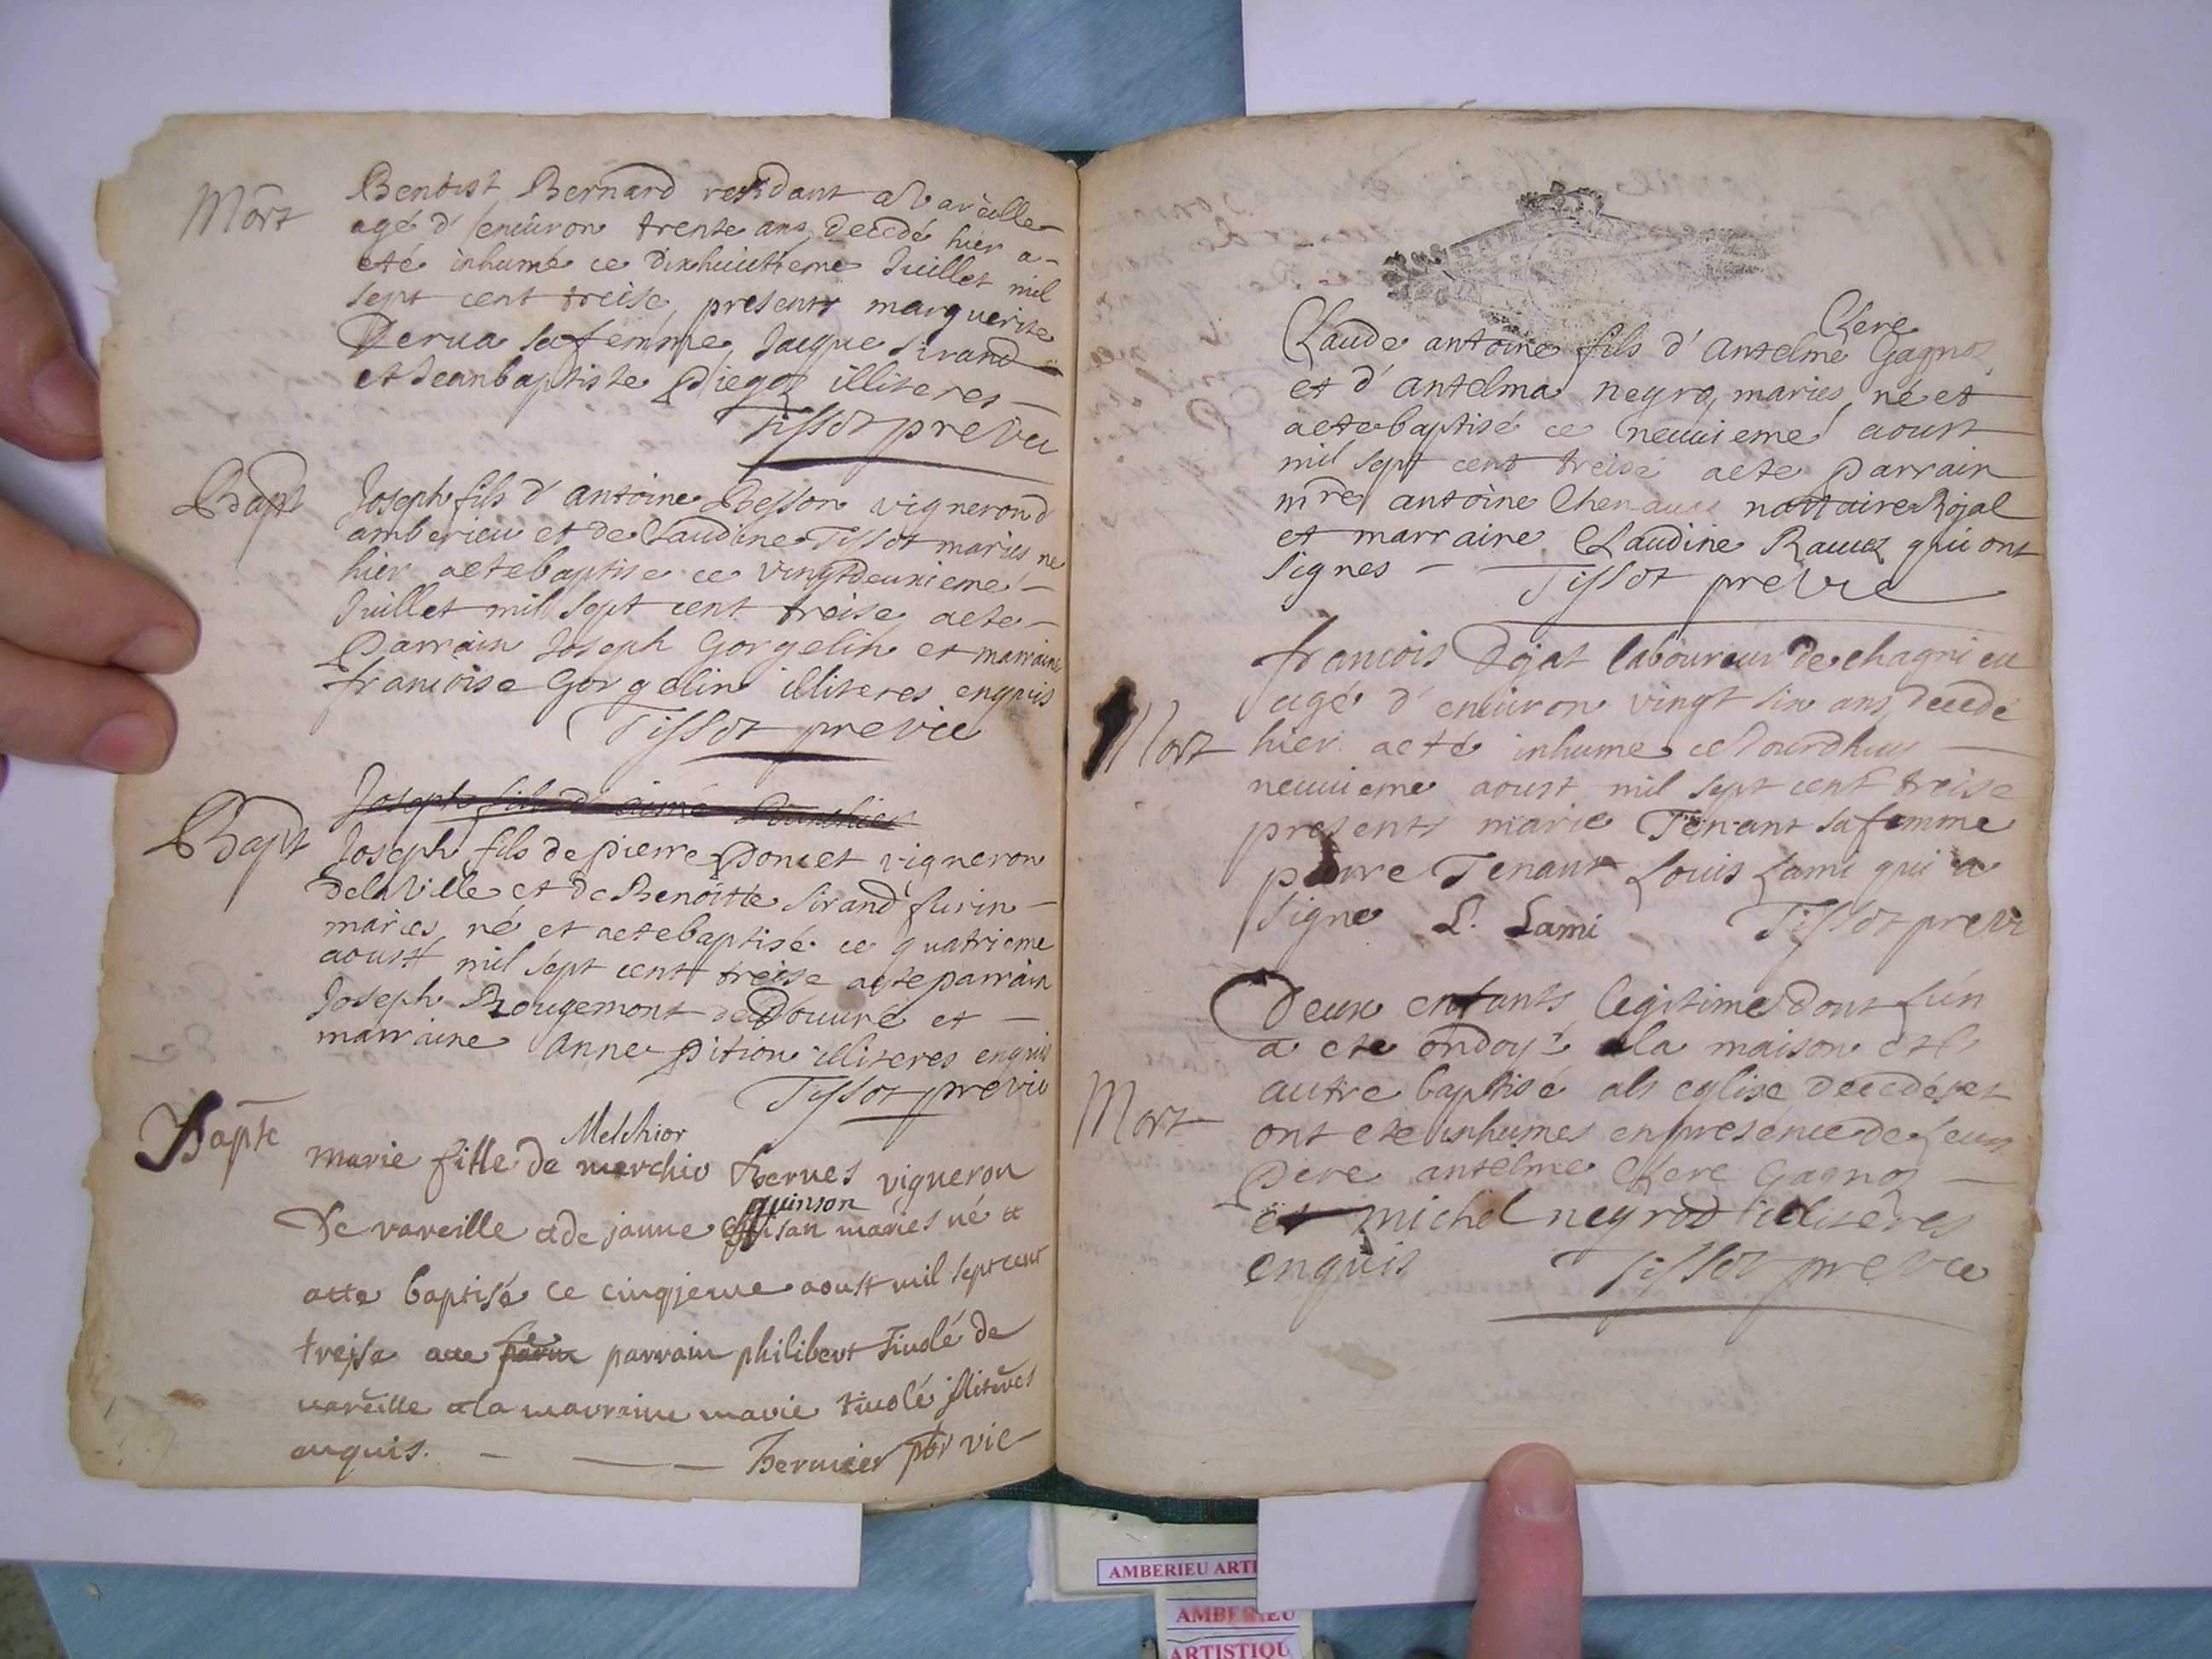 Mort
Benoist Bernard residant a Vareille
agé d'environ trente ans decedé hier a
eté inhumé ce dixhuictieme Juillet mil
sept cent treise presents marguerite
Derua sa femme, Jacque Sirand
et Jeanbaptiste illiteres
Tissot previc
Bapt
Joseph fils d'antoine Besson vigneron d
amberieu et de Claudine Tissot maries né
hier aetebaptise ce vingtdeuxieme
Juillet mil sept cent treise aete
Parrain Joseph Gorgelin et marraine
francoise Gorgelin illiteres enquis
Tissot previc
Joseph fils d'aimé
Bapt
Joseph fils de pierre Poncet vigneron
dela Ville et de Benoitte Sirand
maries né et aetebaptisé ce quatrieme
aoust mil sept cent treise aete parrain
Joseph Rougemont de Douvre et
marraine Anne Pition illiteres enquis
Tissot previc
Bapte
Melchior
Marie fille de merchio herves vigneron
quinson
De vareille et de janne maries né et
atte baptisé ce cinqieme aoust mil sept cent
treise parrain philibert tivolé de
vareille et la marraine marie tivolé illiteres
enquis. — Bernier ptr vic
Chere
Claude antoine fils d'antelme Gagnoz
et d'antelma neyro, maries né et
aetebaptisé ce neuvieme aoust
mil sept cent treise aete parrain
mre antoine nottaire Rojal
et marraine Claudine Rauoz qui ont
signes — Tissot previc
Mort
francois Dejat laboureur de chagnieu
agé d'environ vingt six ans decedé
hier aeté inhumé ceJourdhuy
neuvieme aoust mil sept cent treise
presents marie Tenant sa femme
pierre Tenant Louis Lami qui a
signe L. Lami Tissot previc
Mort
Deux enfants legitimes dont l'un
a ete ondoyé ala maison et l
autre baptisé als eglise decedés et
ont ete inhumes enpresence de leur
Pere antelme Chere Gagnoz
et michel neyrod illiteres
enquis Tissot previc
AMBERIEU ARTI
AMBERIEU
ARTISTIQU